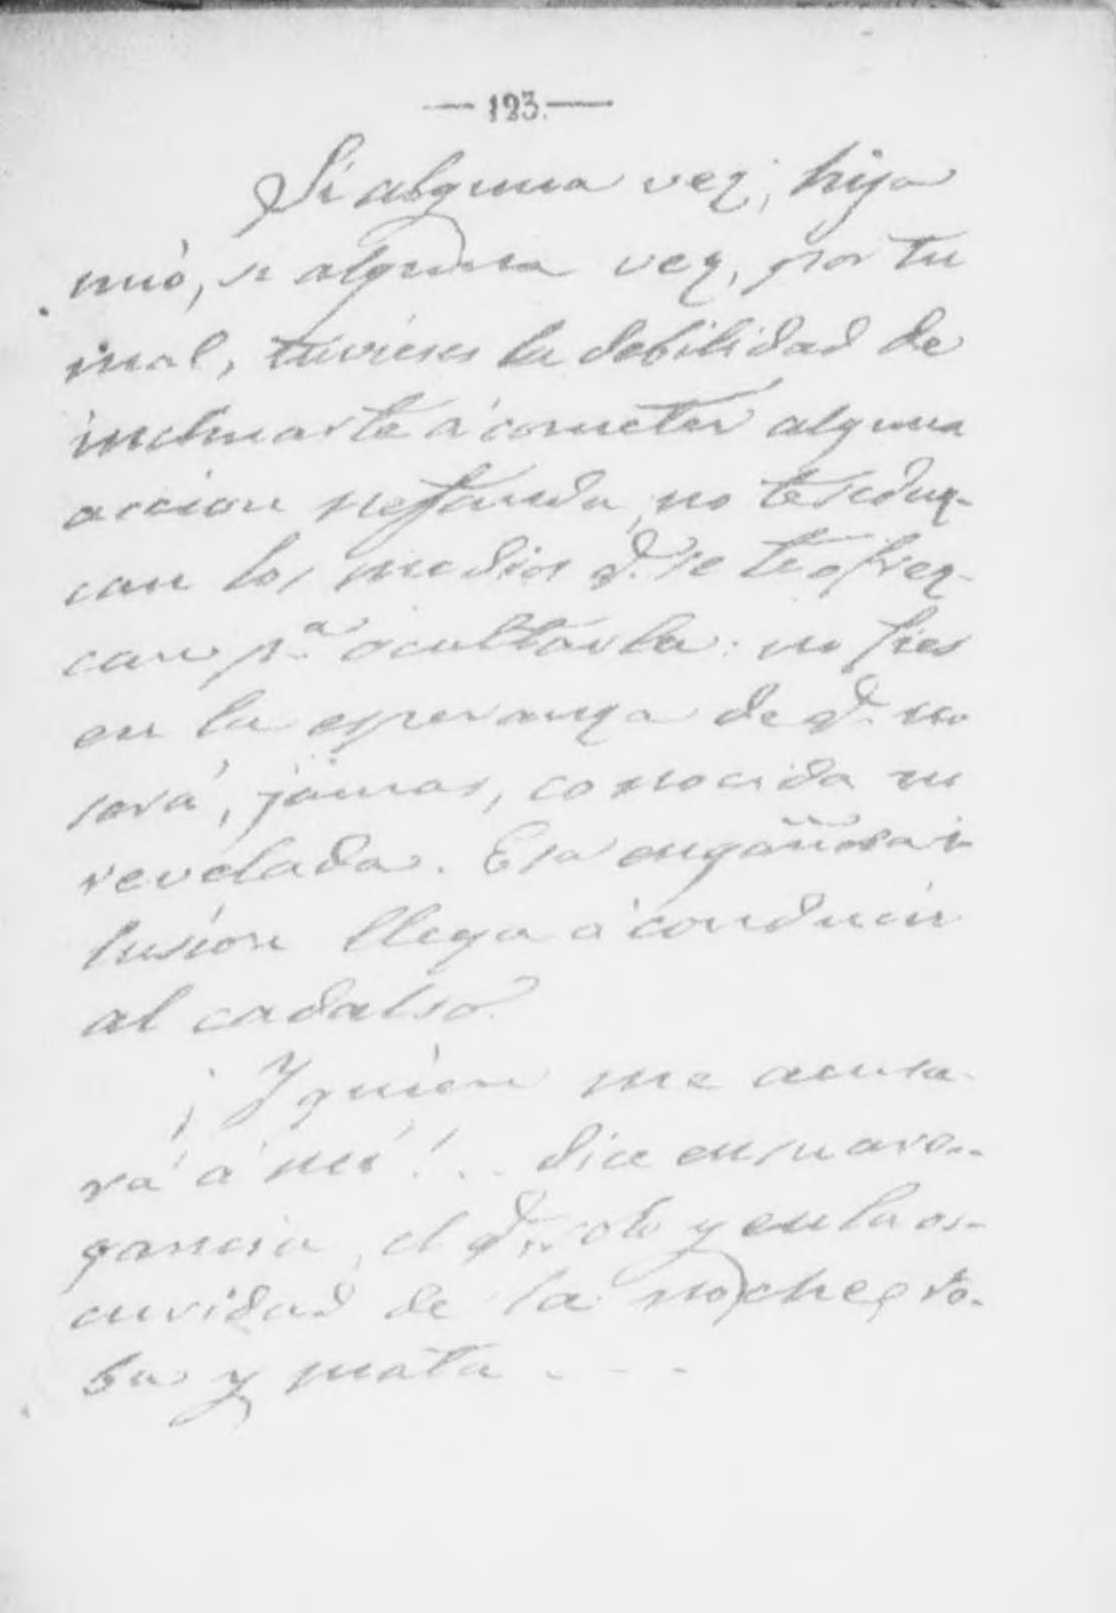 — 123. —
Si alguna vez, hijo
mio, si alguna vez, por tu
mal, tuvieses la debilidad de
inclinarte á cometer alguna
accion nefanda, no te seduz-
can los medios q.e se te ofrez-
can p.a ocultarla: no fies
en la esperanza de q.e no
será, jamas, conocida ni
revelada. Esa engañosa i-
lusion llega á conducir
al cadalso.
¡Y quien me acusa-
rá á mí!... dice en su arro-
gancia, el q.e solo y en la os-
curidad de la noche, ro-
ba y mata . . . .